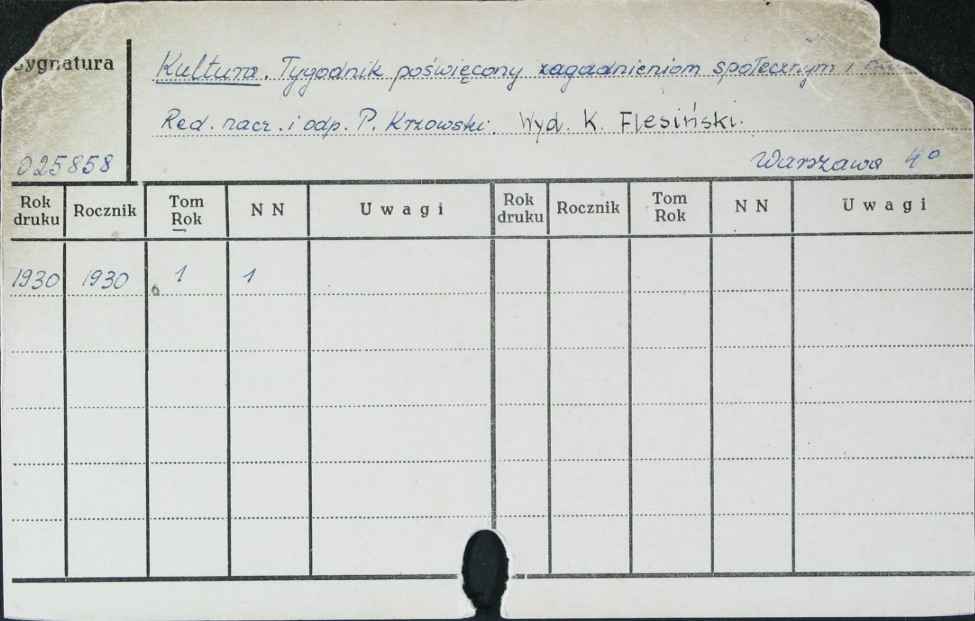 Sygnatura
Kultura. Tygodnik poświęcony zagadnieniom społecznym i
Red. nacz. i odp. P. Krzowski. Wyd. K. Flesiński.
025858
Warszawa 4°
Rok druku Rocznik Tom Rok NN Uwagi Rok druku Rocznik Tom Rok NN Uwagi
1930 1930 1 1